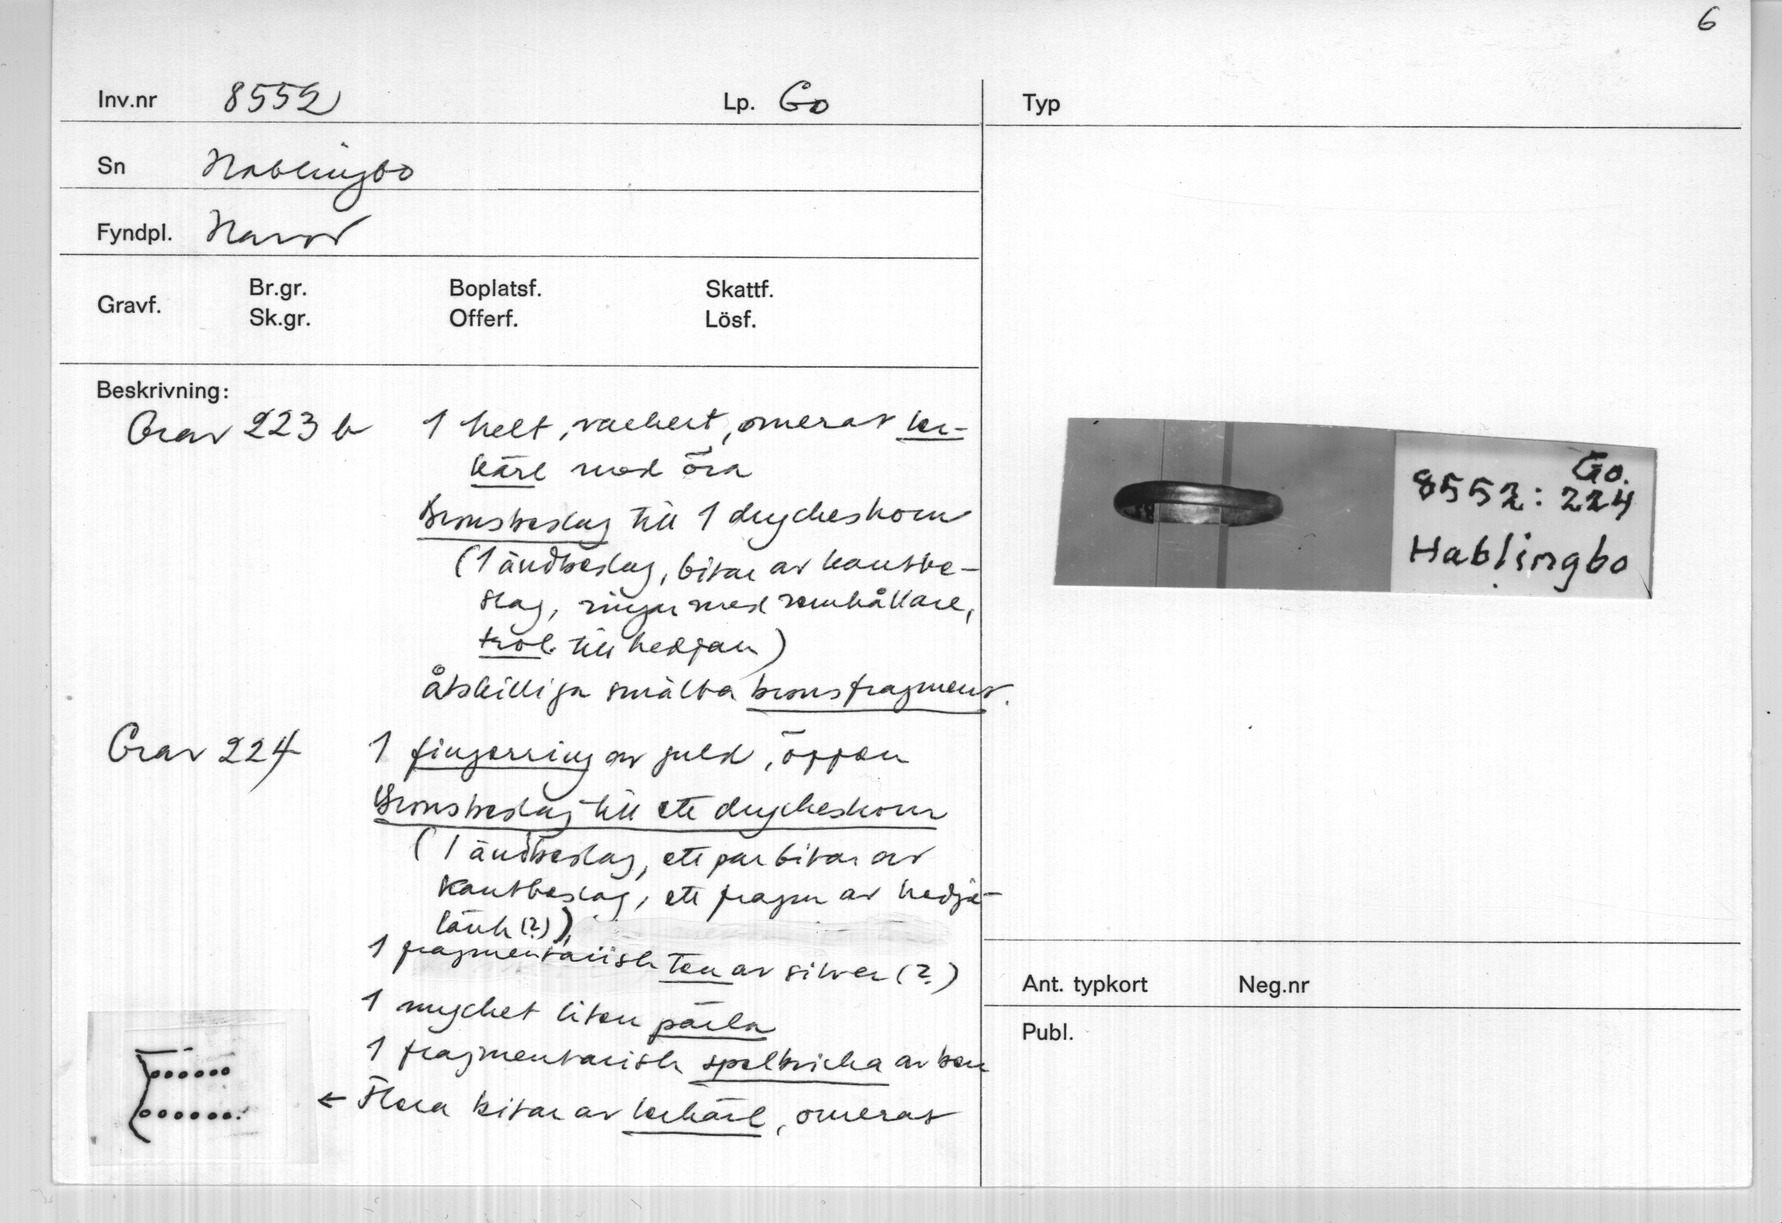 6
Inv.nr 8552 Lp. Go
Sn Hablingbo
Fyndpl. Havor
Gravf. Br.gr. Boplatsf. Skattf.
Sk.gr. Offerf. Lösf.
Beskrivning:
Grav 223 b 1 helt, vackert, ornerat ler-
kärl med öra
Bronsbeslag till 1 dryckeshorn
(1 ändbeslag, bitar av kantbe-
slag, ringar med remhållare,
trol. till kedjan)
åtskilliga smälta bronsfragment.
Grav 224 1 fingerring av guld, öppen
Bronsbeslag till ett dryckeshorn
(1 ändbeslag, ett par bitar av
kantbeslag, ett fragm av kedje-
länk (?))
1 fragmentarisk ten av silver (?)
1 mycket liten pärla
1 fragmentarisk spelbricka av ben
← Flera bitar av lerkärl, ornerat
Typ
Go.
8552: 224
Hablingbo
Ant. typkort Neg.nr
Publ.